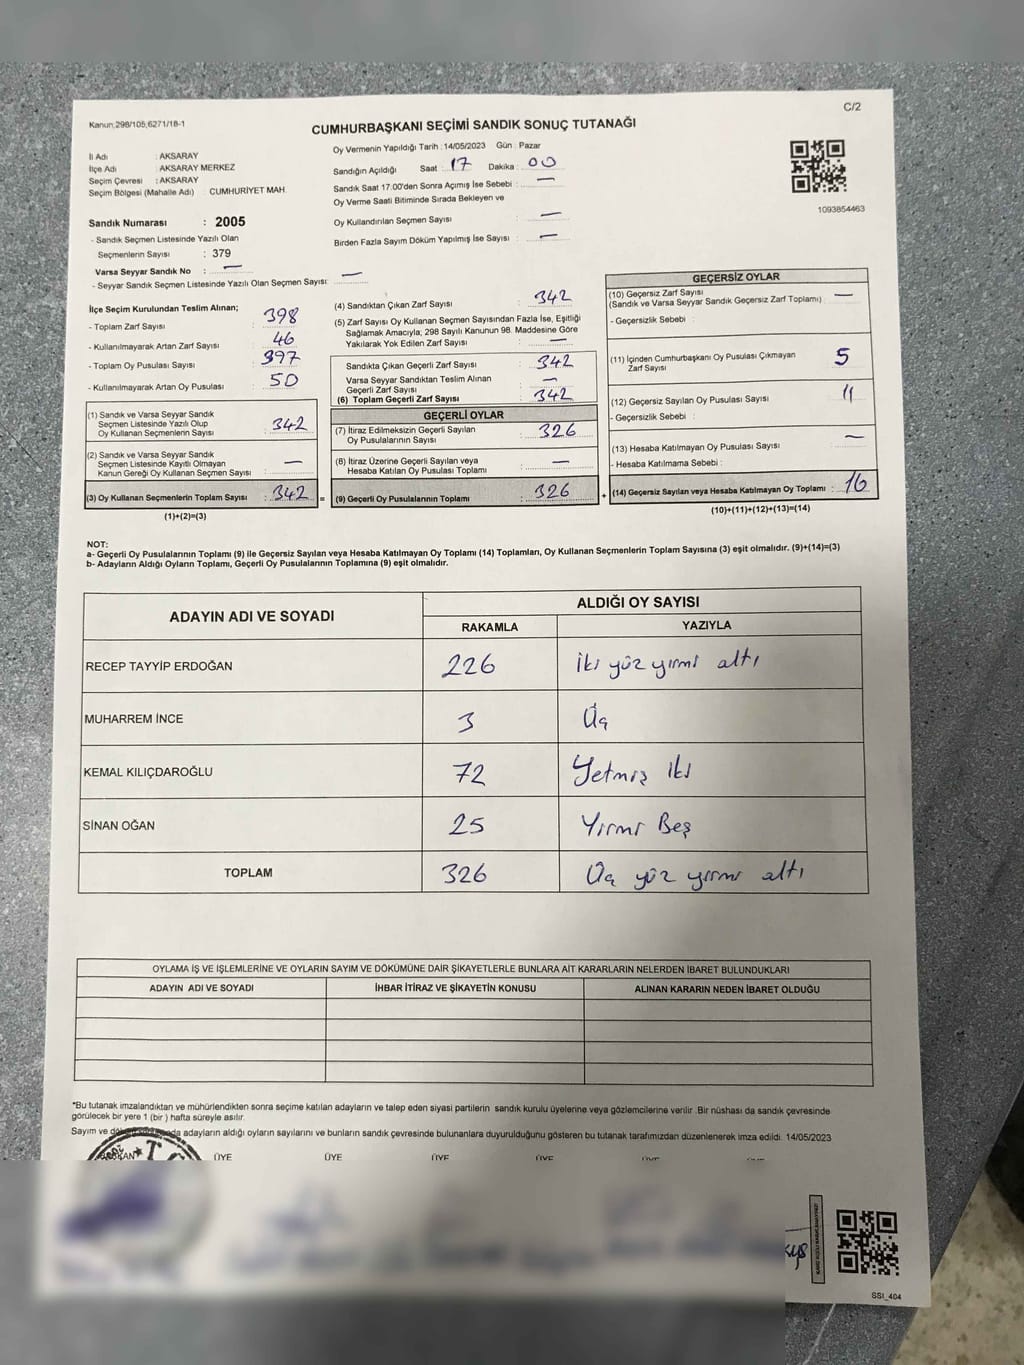 C/2
Kanun;298/105;6271/18-1
CUMHURBAŞKANI SEÇİMİ SANDIK SONUÇ TUTANAĞI
İl Adı : AKSARAY
İlçe Adı : AKSARAY MERKEZ
Seçim Çevresi : AKSARAY
Seçim Bölgesi (Mahalle Adı) : CUMHURİYET MAH.
Sandık Numarası : 2005
- Sandık Seçmen Listesinde Yazılı Olan
Seçmenlerin Sayısı : 379
Varsa Seyyar Sandık No : —
- Seyyar Sandık Seçmen Listesinde Yazılı Olan Seçmen Sayısı: —
Oy Vermenin Yapıldığı Tarih : 14/05/2023 Gün : Pazar
Sandığın Açıldığı Saat : 17 Dakika : 00
Sandık Saat 17:00'den Sonra Açımış İse Sebebi : —
Oy Verme Saati Bitiminde Sırada Bekleyen ve
Oy Kullandırılan Seçmen Sayısı : —
Birden Fazla Sayım Döküm Yapılmış İse Sayısı : —
1093854463
İlçe Seçim Kurulundan Teslim Alınan;
- Toplam Zarf Sayısı : 398
- Kullanılmayarak Artan Zarf Sayısı : 46
- Toplam Oy Pusulası Sayısı : 397
- Kullanılmayarak Artan Oy Pusulası : 50
(1) Sandık ve Varsa Seyyar Sandık
Seçmen Listesinde Yazılı Olup
Oy Kullanan Seçmenlerin Sayısı : 342
(2) Sandık ve Varsa Seyyar Sandık
Seçmen Listesinde Kayıtlı Olmayan
Kanun Gereği Oy Kullanan Seçmen Sayısı : —
(3) Oy Kullanan Seçmenlerin Toplam Sayısı : 342 =
(1)+(2)=(3)
(4) Sandıktan Çıkan Zarf Sayısı : 342
(5) Zarf Sayısı Oy Kullanan Seçmen Sayısından Fazla İse, Eşitliği
Sağlamak Amacıyla; 298 Sayılı Kanunun 98. Maddesine Göre
Yakılarak Yok Edilen Zarf Sayısı : —
Sandıkta Çıkan Geçerli Zarf Sayısı : 342
Varsa Seyyar Sandıktan Teslim Alınan
Geçerli Zarf Sayısı : —
(6) Toplam Geçerli Zarf Sayısı : 342
GEÇERLİ OYLAR
(7) İtiraz Edilmeksizin Geçerli Sayılan
Oy Pusulalarının Sayısı : 326
(8) İtiraz Üzerine Geçerli Sayılan veya
Hesaba Katılan Oy Pusulası Toplamı : —
(9) Geçerli Oy Pusulalarının Toplamı : 326 +
GEÇERSİZ OYLAR
(10) Geçersiz Zarf Sayısı : —
(Sandık ve Varsa Seyyar Sandık Geçersiz Zarf Toplamı)
- Geçersizlik Sebebi :
(11) İçinden Cumhurbaşkanı Oy Pusulası Çıkmayan : 5
Zarf Sayısı
(12) Geçersiz Sayılan Oy Pusulası Sayısı : 11
- Geçersizlik Sebebi :
(13) Hesaba Katılmayan Oy Pusulası Sayısı : —
- Hesaba Katılmama Sebebi :
(14) Geçersiz Sayılan veya Hesaba Katılmayan Oy Toplamı : 16
(10)+(11)+(12)+(13)=(14)
NOT:
a- Geçerli Oy Pusulalarının Toplamı (9) ile Geçersiz Sayılan veya Hesaba Katılmayan Oy Toplamı (14) Toplamları, Oy Kullanan Seçmenlerin Toplam Sayısına (3) eşit olmalıdır. (9)+(14)=(3)
b- Adayların Aldığı Oyların Toplamı, Geçerli Oy Pusulalarının Toplamına (9) eşit olmalıdır.
ADAYIN ADI VE SOYADI ALDIĞI OY SAYISI
RAKAMLA YAZIYLA
RECEP TAYYİP ERDOĞAN 226 iki yüz yirmi altı
MUHARREM İNCE 3 Üç
KEMAL KILIÇDAROĞLU 72 Yetmiş iki
SİNAN OĞAN 25 Yirmi Beş
TOPLAM 326 Üç yüz yirmi altı
OYLAMA İŞ VE İŞLEMLERİNE VE OYLARIN SAYIM VE DÖKÜMÜNE DAİR ŞİKAYETLERLE BUNLARA AİT KARARLARIN NELERDEN İBARET BULUNDUKLARI
ADAYIN ADI VE SOYADI İHBAR İTİRAZ VE ŞİKAYETİN KONUSU ALINAN KARARIN NEDEN İBARET OLDUĞU
*Bu tutanak imzalandıktan ve mühürlendikten sonra seçime katılan adayların ve talep eden siyasi partilerin sandık kurulu üyelerine veya gözlemcilerine verilir .Bir nüshası da sandık çevresinde
görülecek bir yere 1 (bir ) hafta süreyle asılır.
Sayım ve adayların aldığı oyların sayılarını ve bunların sandık çevresinde bulunanlara duyurulduğunu gösteren bu tutanak tarafımızdan düzenlenerek imza edildi. 14/05/2023
ÜYE ÜYE ÜYE ÜYE ÜYE ÜYE
SSI_404